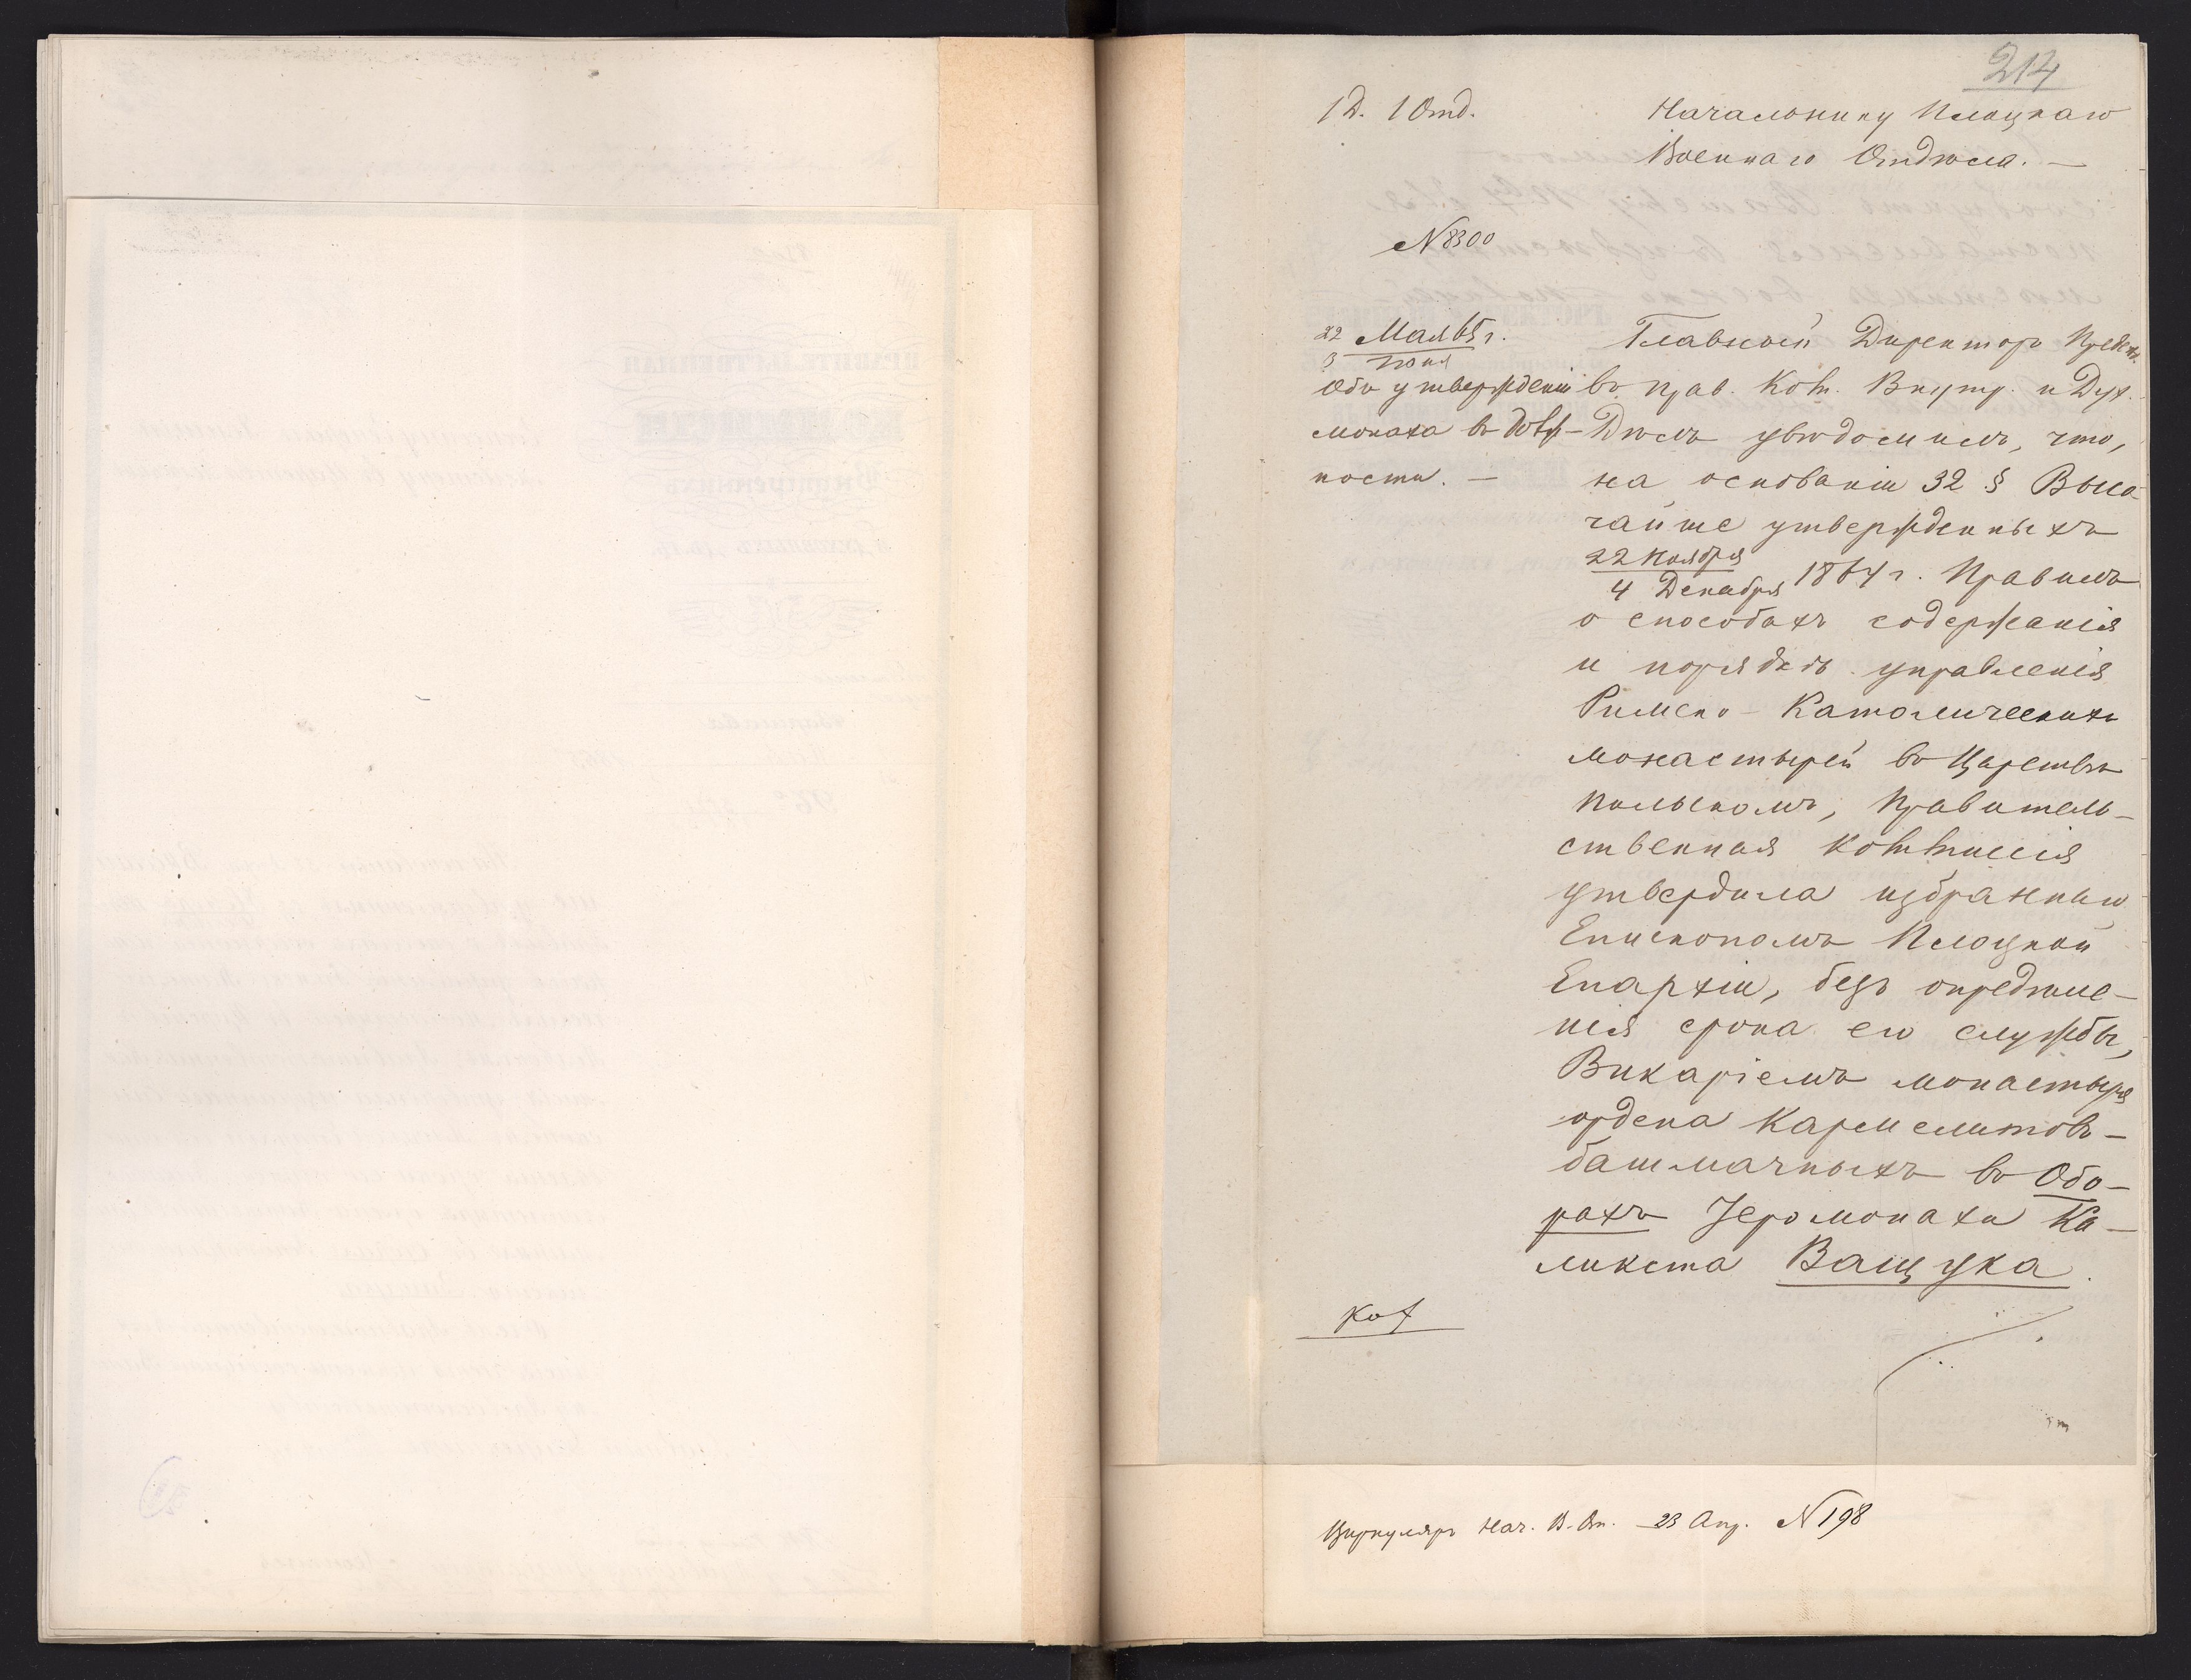 214
1 Д. 1 Отд.
Начальнику Плоцкаго
Военнаго Отдѣла. —
№ 8300
22 Мая 65 г.
3 Іюня
Объ утвержденіи
монаха въ долж-
ности. —
Главный Директоръ Предсѣд.
въ Прав. Ком. Внутр. и Дух.
Дѣлъ увѣдомилъ, что,
на основаніи 32 § Высо-
чайше утвержденныхъ
22 Ноября
4 Декабря 1864 г. Правилъ
о способахъ содержанія
и порядкѣ управленія
Римско-Католическихъ
монастырей въ Царствѣ
Польскомъ, Правитель-
ственная Коммисія
утвердила избраннаго
Епископомъ Плоцкой
Епархіи, безъ опредѣле-
нія срока его службы,
Викаріемъ монастыря
ордена Кармелитовъ-
башмачныхъ въ Обо-
рахъ Іеромонаха Ка-
ликста Ващука.
Циркуляръ Нач. В. От. 23 Апр. № 198